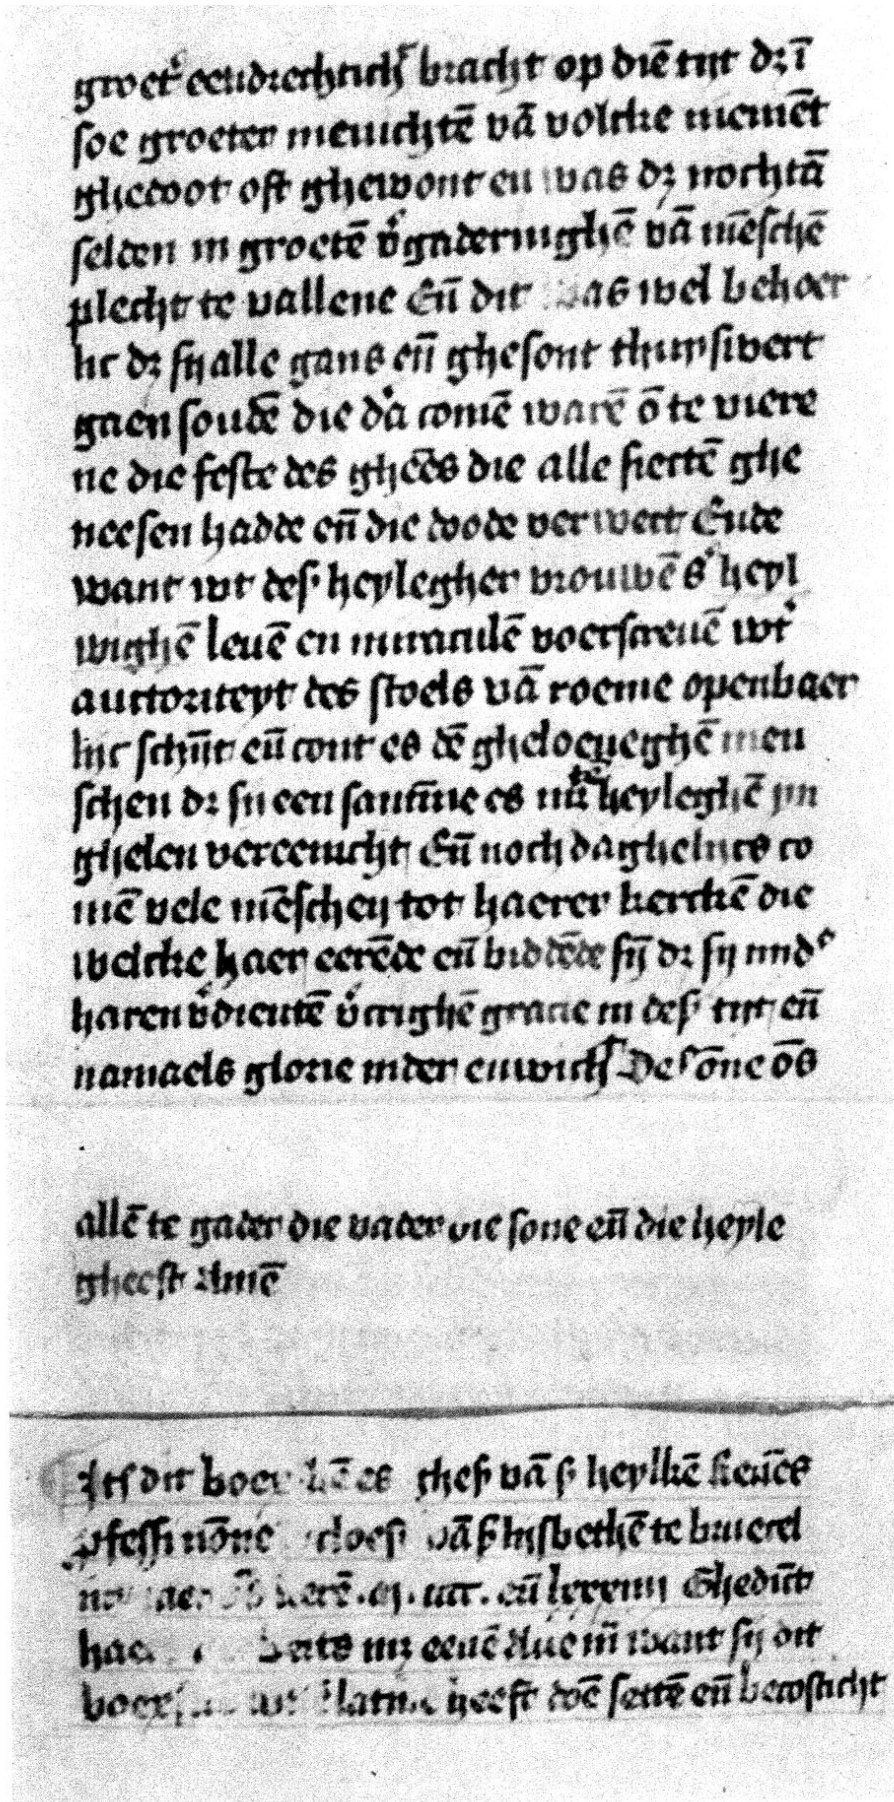 groet' eendrechtich bracht op diē tijt dz ī
soe groeter menichtē vā volcke niemēt
ghedoot oft ghewont en was dz nochtā
selden in groetē v'gaderinghē vā mēschē
plecht te vallene Eñ dit was wel behoer
lic dz sij alle gans eñ ghesont thuysweert
gaen soudē die daer comē warē ō te viere
ne die feste des ghēēs die alle siectē ghe
neesen hadde eñ die doode verwect Ende
want wt des heylegher vrouwē S' heyl
wighē leuē en miraculē voerscreuē wt'
auctoriteyt des stoels vā roeme openbaer
lijc schijt eñ cont es dē gheloeueghē men
schen dz sij een sanctīne es mz tē heyleghē yn
ghelen vereenicht Eñ noch daghelijcs co
mē vele mēschen tot haerer kerckē die
welcke haer eerēde eñ biddēde sijn dz sij mids
haren v'dientē v'crighē gracie in des tijt eñ
namaels glorie inder ewich De sōne ōs
allē te gader die vader die sone eñ die heyle
gheest Amē
Itē dit boec es vā S heylkē
pfessi nōne vā S lijsbethē te bruesel
eñ Ghedinct
haer mz eenē Aue mī want sij dit
heeft doē settē eñ becosticht